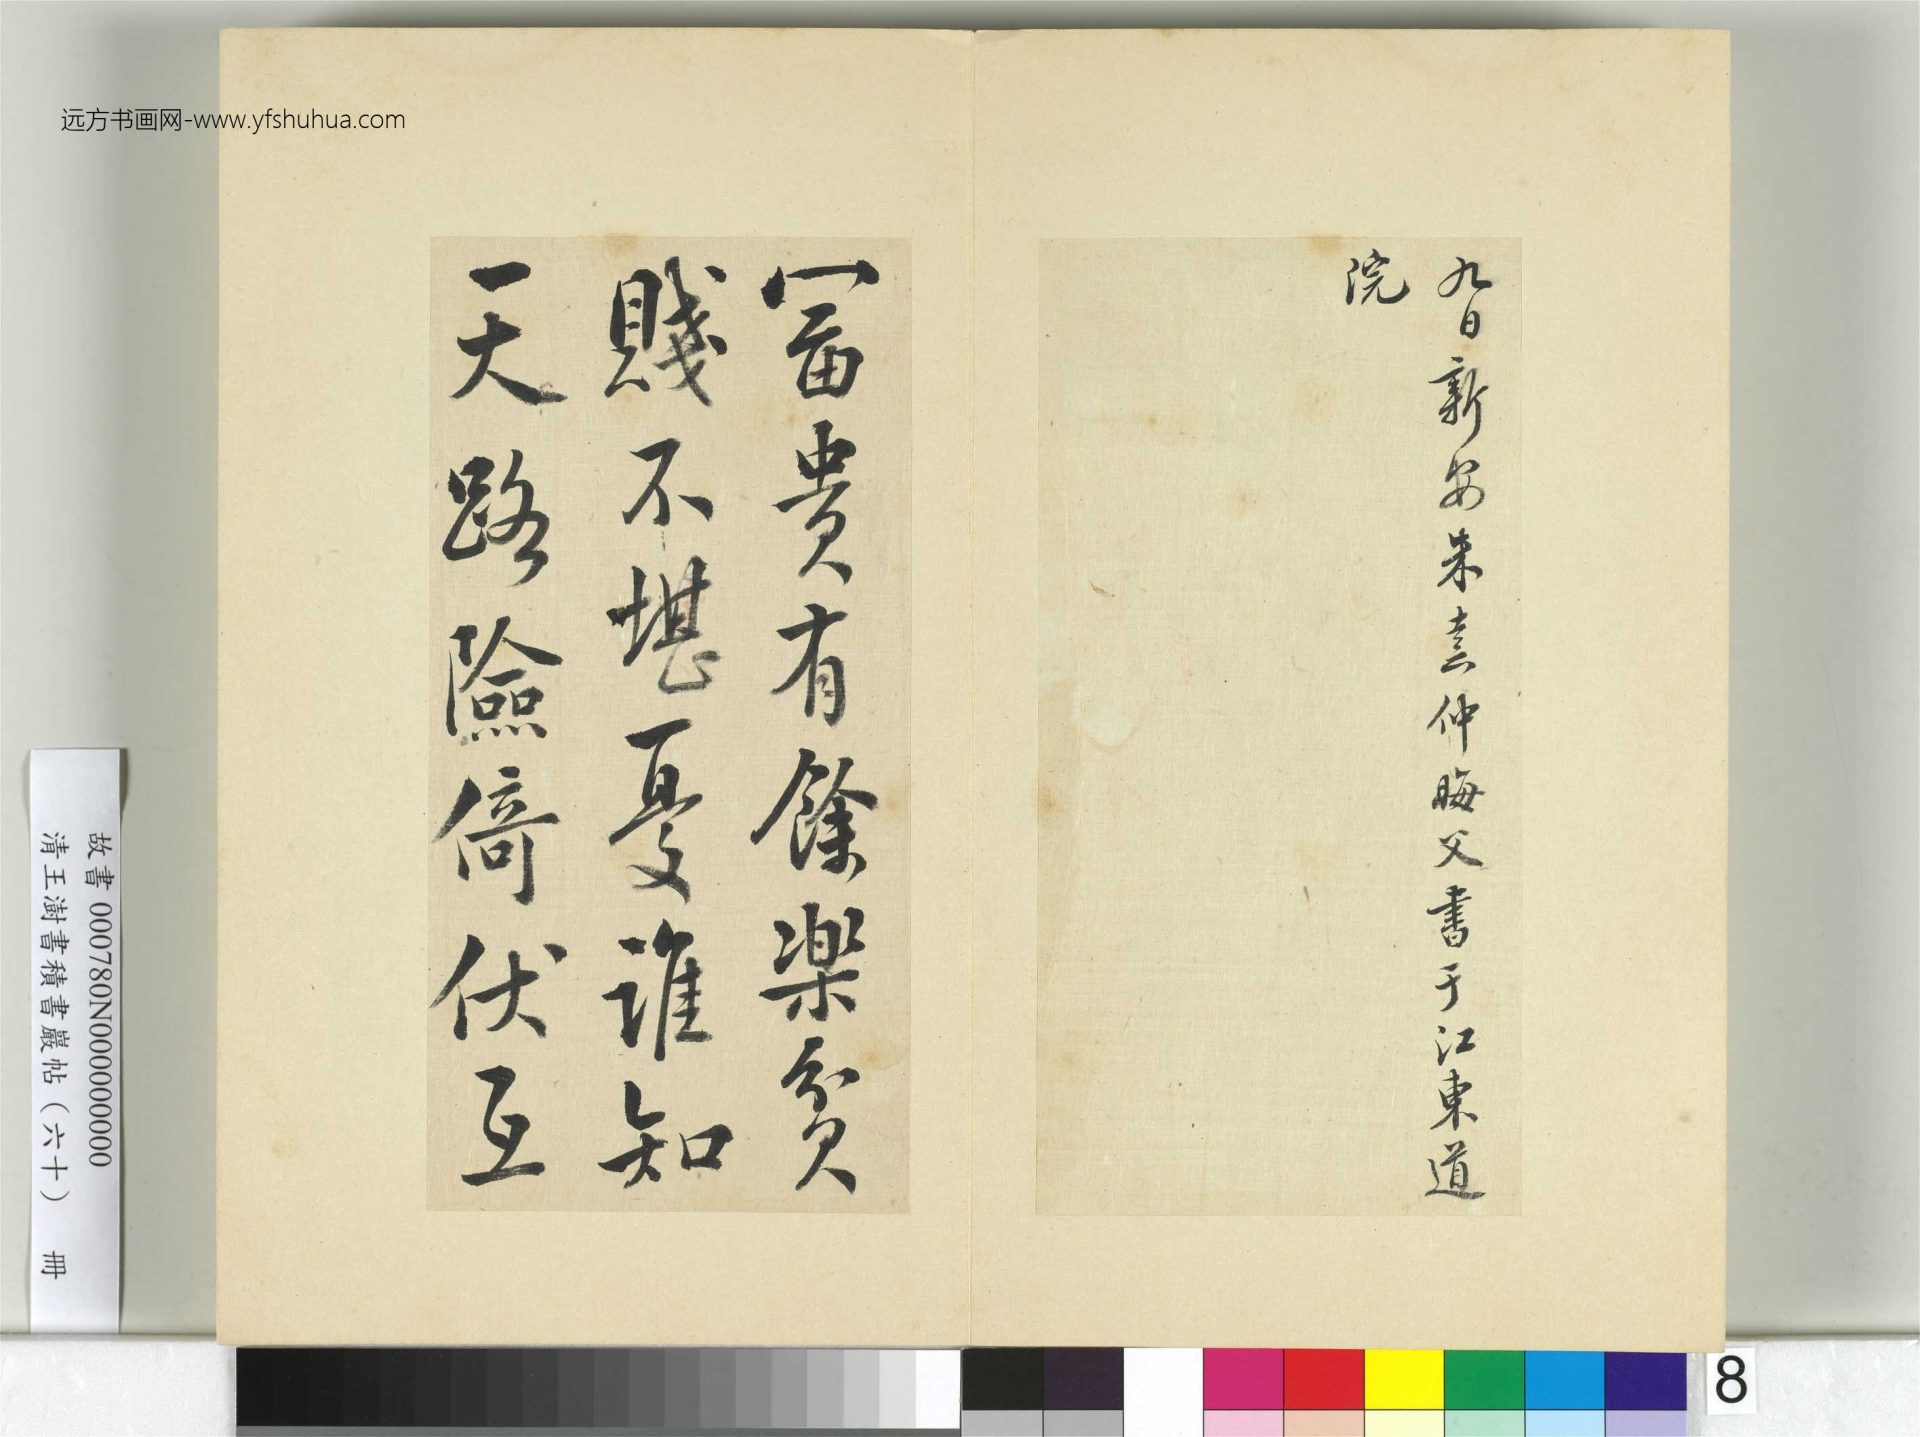 远方书画网-www.yfshuhua.com
九日新安朱熹仲晦父書于江東道
院
富貴有餘樂貧
賤不堪憂誰知
天路險倚伏互
故書 000780N000000000
清王澍書積書巖帖(六十) 冊
8